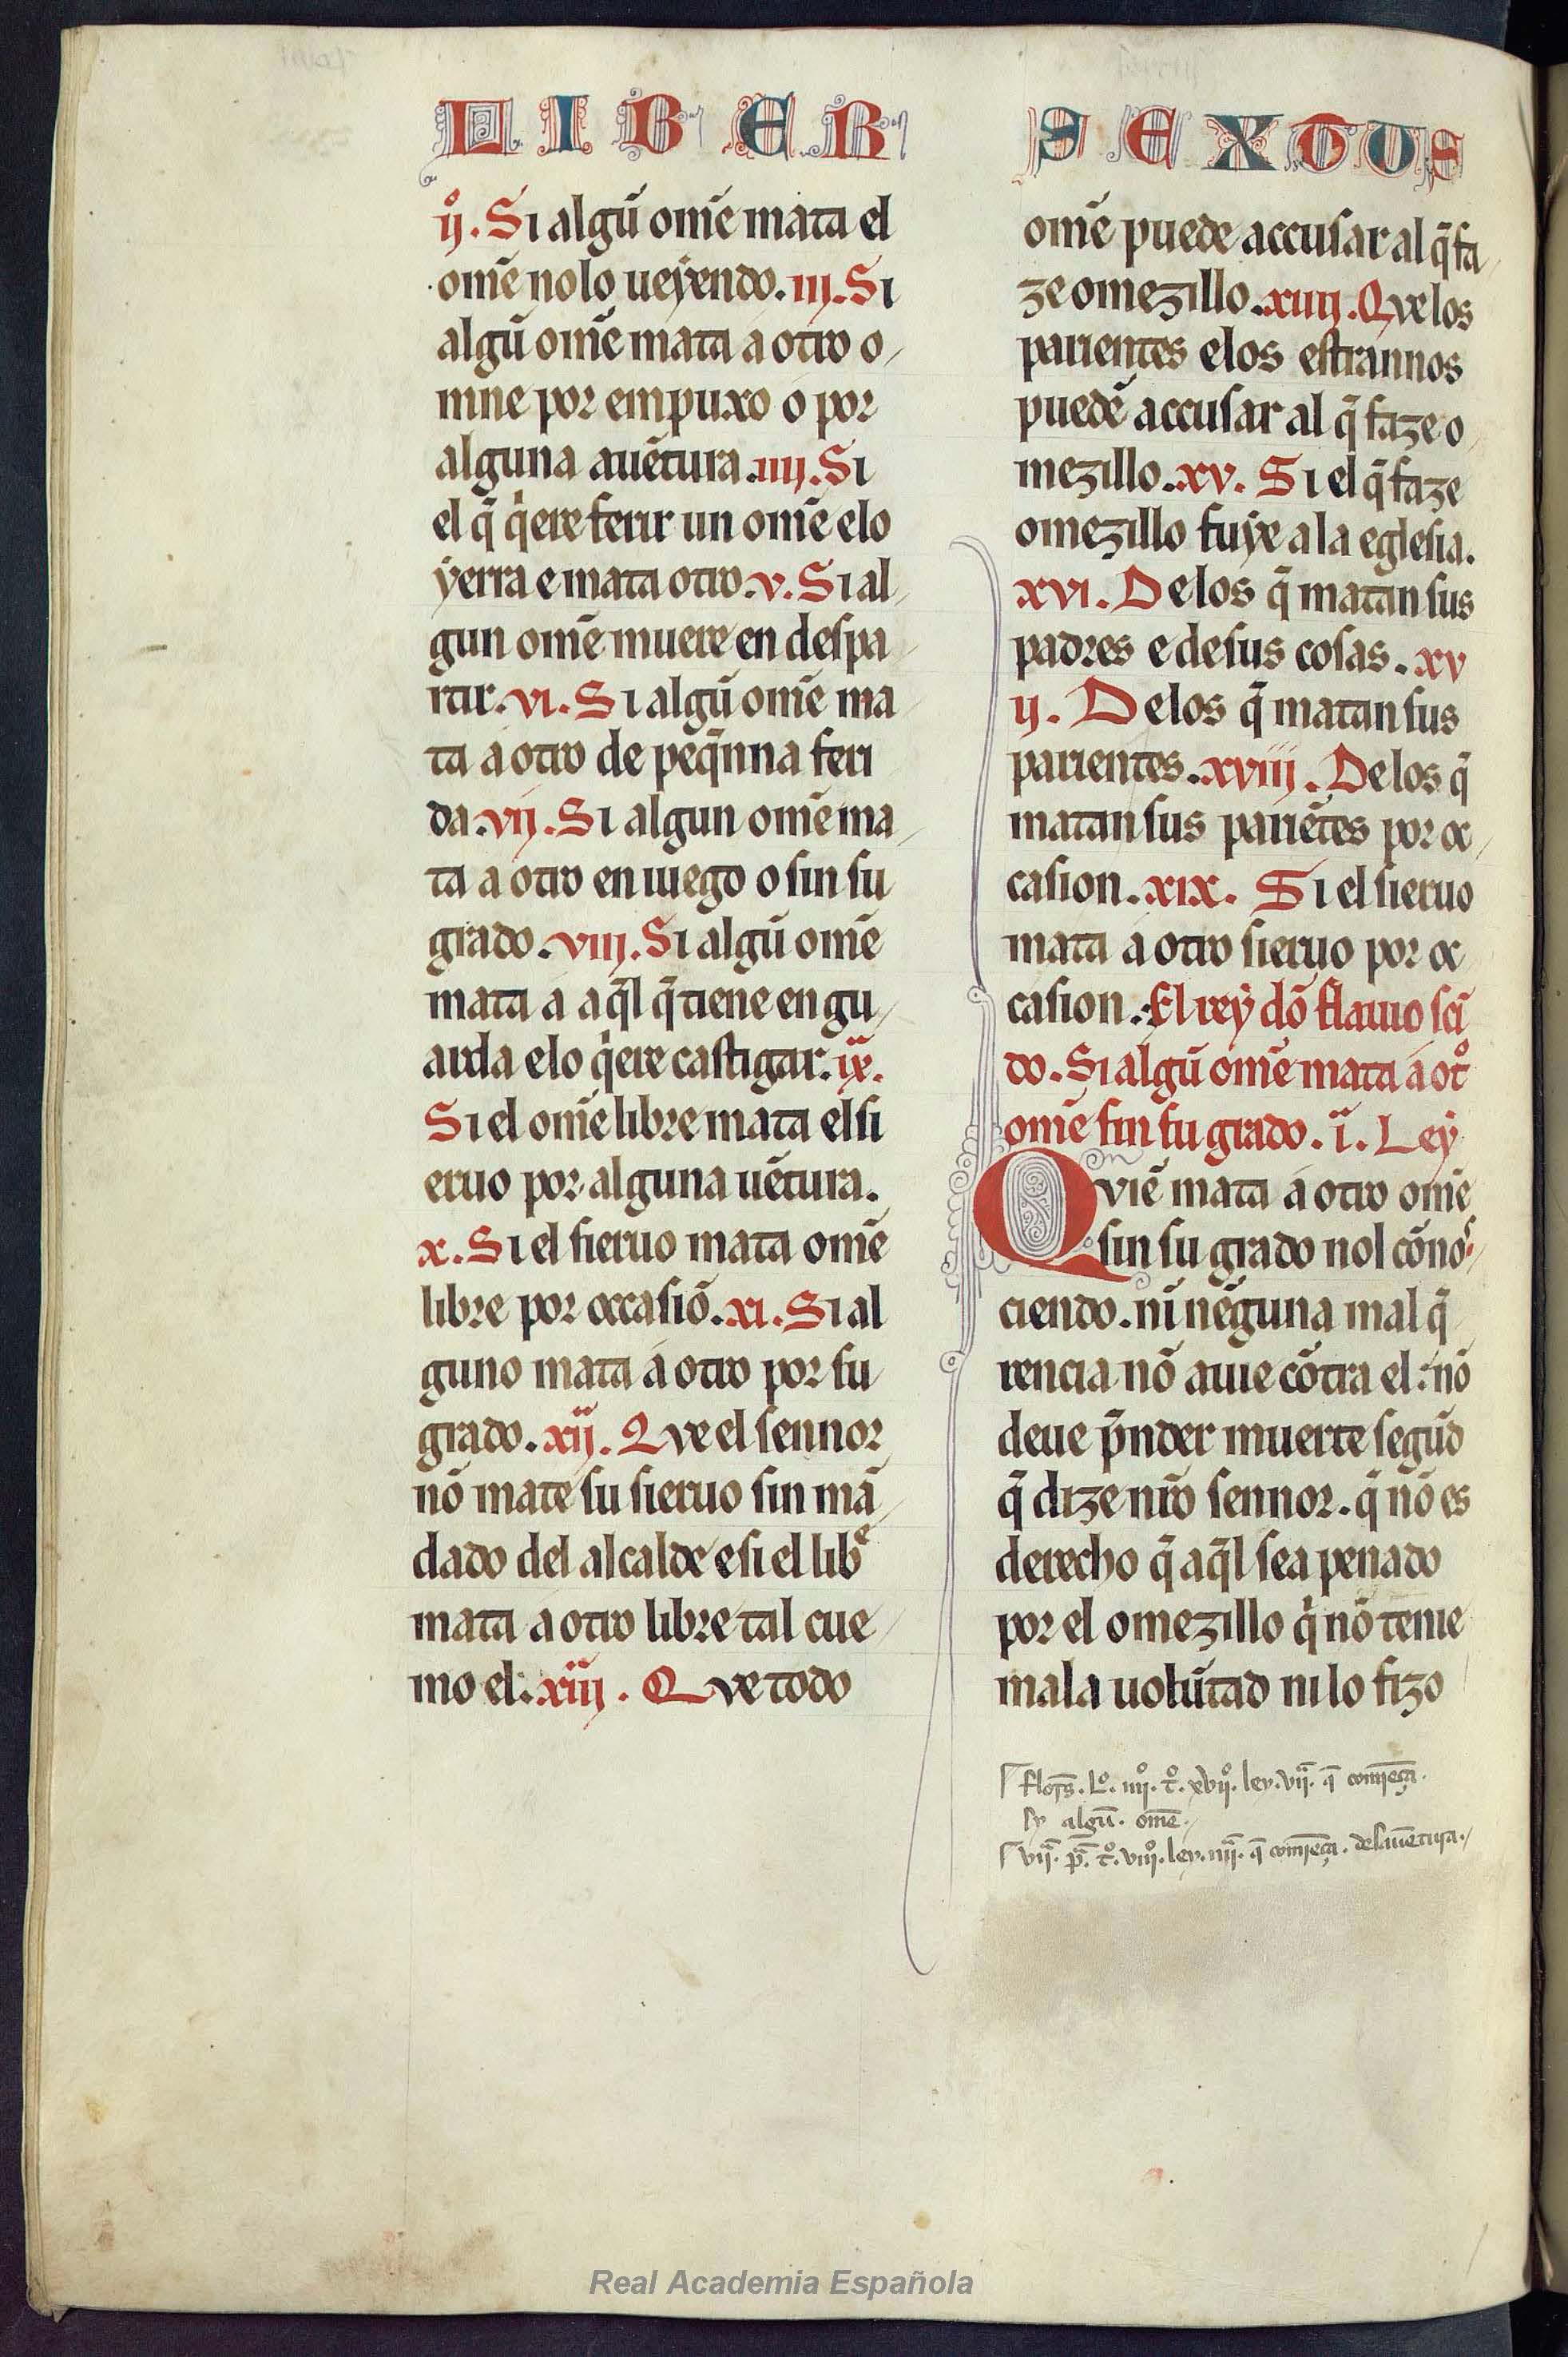 LIBER SEXTUS
ijº. Si algũ om̃e mata el
om̃e no lo ueẏendo. iij. Si
algũ om̃e mata a otro o
mne por empuxo o por
alguna auẽtura. iiij. Si
el q̃ qͥere ferir un om̃e e lo
ẏerra e mata otro. v. Si al
gun om̃e muere en despa
rtir. vi. Si algũ om̃e ma
ta a otro de peq̃nna feri
da. vij. Si algun om̃e ma
ta a otro en iuego o sin su
grado. viij. Si algũ om̃e
mata a aq̃l q̃ tiene en gu
arda e lo qͥere castigar. ix.
Si el om̃e libre mata el si
eruo por alguna uẽtura.
x. Si el sieruo mata om̃e
libre por occasiõ. xi. Si al
guno mata a otro por su
grado. xij. Que el sennor
nõ mate su sieruo sin mã
dado del alcalde e si el libᵉ
mata a otro libre tal cue
mo el. xiij. Que todo
om̃e puede accusar al q̃ fa
ze omezillo. xiiij. Que los
parientes e los estrannos
puedẽ accusar al q̃ faze o
mezillo. xv. Si el q̃ faze
omezillo fuẏe a la eglesia.
xvi. De los q̃ matan sus
padres e de sus cosas. xv
ij. De los q̃ matan sus
parientes. xviij. De los q̃
matan sus pariẽtes por oc
casion. xix. Si el sieruo
mata a otro sieruo por oc
casion. El reẏ dõ flauio sci
do. Si algũ om̃e mata a otº
om̃e sin su grado. i. Leẏ
Quiẽ mata a otro om̃e
sin su grado nol cõnos
ciendo. ni nẽguna mal q̃
rencia nõ auie cõtra el: nõ
deue p̃nder muerte segũd
q̃ dize nr̃o sennor. q̃ nõ es
derecho q̃ aq̃l sea penado
por el omezillo qͥ nõ tenie
mala uolũtad ni lo fizo
flores. Lº. iiijº. tº. xvijº. ley. vijª. q̃ comjẽça.
sy algũ. om̃e.
vijª. pª. tº. viijº. ley. iiijª. q̃ comjẽça. desauẽtura.
Real Academia Española